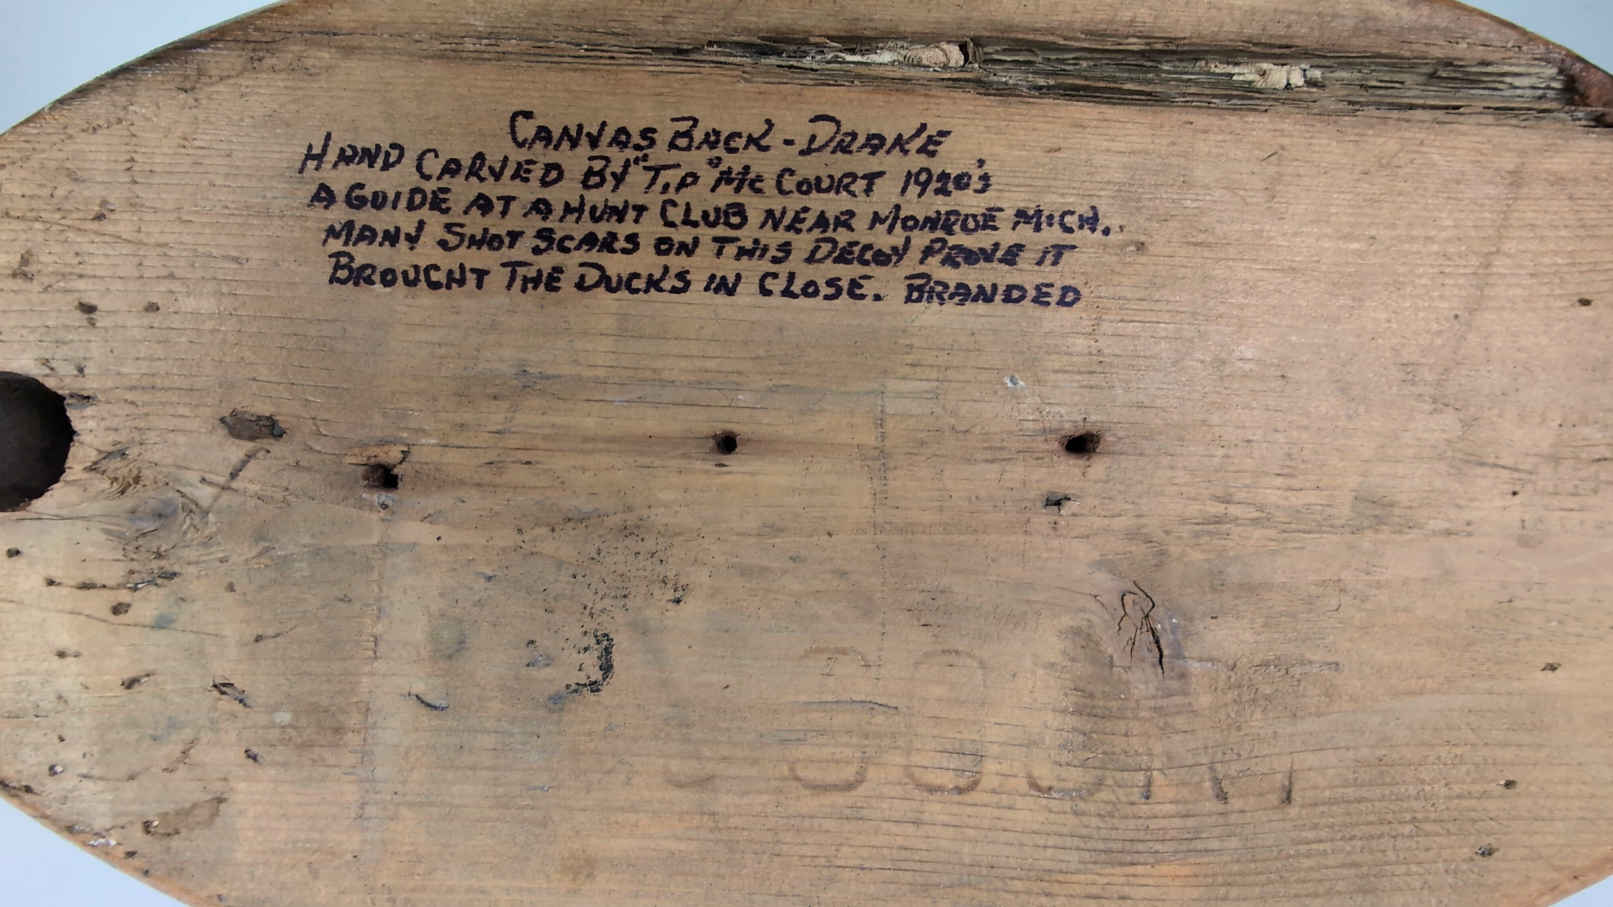 CANVAS BACK - DRAKE
HAND CARVED BY "T.P" Mc COURT 1920'S
A GUIDE AT A HUNT CLUB NEAR MONROE MICH.
MANY SHOT SCARS ON THIS DECOY PROVE IT
BROUGHT THE DUCKS IN CLOSE. BRANDED